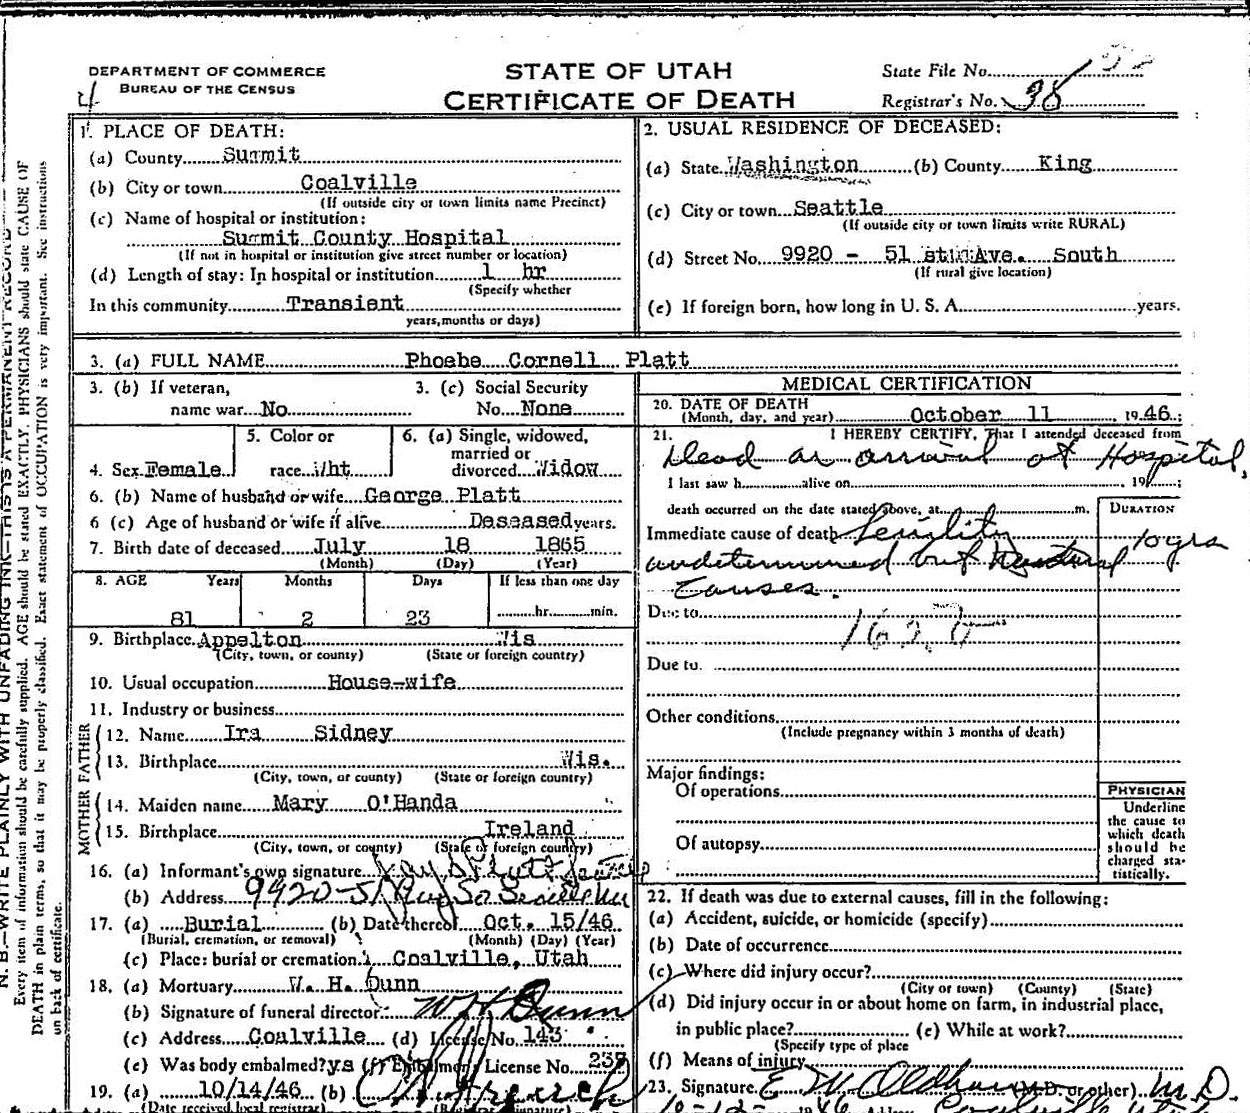 DEPARTMENT OF COMMERCE
BUREAU OF THE CENSUS
4
STATE OF UTAH
CERTIFICATE OF DEATH
State File No.
Registrar's No. 38
1. PLACE OF DEATH:
(a) County Summit
(b) City or town Coalville
(If outside city or town limits name Precinct)
(c) Name of hospital or institution:
Summit County Hospital
(If not in hospital or institution give street number or location)
(d) Length of stay: In hospital or institution 1 hr
(Specify whether
In this community Transient
years, months or days)
2. USUAL RESIDENCE OF DECEASED:
(a) State Washington (b) County King
(c) City or town Seattle
(If outside city or town limits write RURAL)
(d) Street No. 9920 - 51 Ave. South
(If rural give location)
(e) If foreign born, how long in U. S. A. years.
3. (a) FULL NAME Phoebe Cornell Platt
3. (b) If veteran,
name war No
3. (c) Social Security
No. None
4. Sex Female
5. Color or
race Wht
6. (a) Single, widowed,
married or
divorced Widow
6. (b) Name of husband or wife George Platt
6 (c) Age of husband or wife if alive Deseased years.
7. Birth date of deceased July 18 1865
(Month) (Day) (Year)
8. AGE Years Months Days If less than one day
81 2 23 hr. min.
9. Birthplace Appelton Wis
(City, town, or county) (State or foreign country)
10. Usual occupation House-wife
11. Industry or business
FATHER
12. Name Ira Sidney
13. Birthplace Wis.
(City, town, or county) (State or foreign country)
MOTHER
14. Maiden name Mary O'Handa
15. Birthplace Ireland
(City, town, or county) (State or foreign country)
16. (a) Informant's own signature
(b) Address
17. (a) Burial (b) Date thereof Oct. 15/46
(Burial, cremation, or removal) (Month) (Day) (Year)
(c) Place: burial or cremation Coalville, Utah
18. (a) Mortuary W. H. Dunn
(b) Signature of funeral director W H Dunn
(c) Address Coalville (d) License No. 143
(e) Was body embalmed? ys (f) Embalmer's License No.
19. (a) 10/14/46 (b)
(Date received local registrar)
MEDICAL CERTIFICATION
20. DATE OF DEATH
(Month, day, and year) October 11 1946;
21. I HEREBY CERTIFY, That I attended deceased from
Dead on arrival at Hospital,
I last saw h alive on 19 ;
death occurred on the date stated above, at m.
DURATION
Immediate cause of death Senility 10 yrs
undetermined but Natural
Causes.
Due to
Due to
Other conditions
(Include pregnancy within 3 months of death)
Major findings:
Of operations
Of autopsy
PHYSICIAN
Underline
the cause to
which death
should be
charged sta-
tistically.
22. If death was due to external causes, fill in the following:
(a) Accident, suicide, or homicide (specify)
(b) Date of occurrence
(c) Where did injury occur?
(City or town) (County) (State)
(d) Did injury occur in or about home on farm, in industrial place,
in public place? (e) While at work?
(Specify type of place
(f) Means of injury
23. Signature E W Oldham (M.D. or other) M.D.
N. B.—WRITE PLAINLY WITH UNFADING INK—THIS IS A PERMANENT RECORD
Every item of information should be carefully supplied. AGE should be stated EXACTLY. PHYSICIANS should state CAUSE OF
DEATH in plain terms, so that it may be properly classified. Exact statement of OCCUPATION is very important. See instructions
on back of certificate.